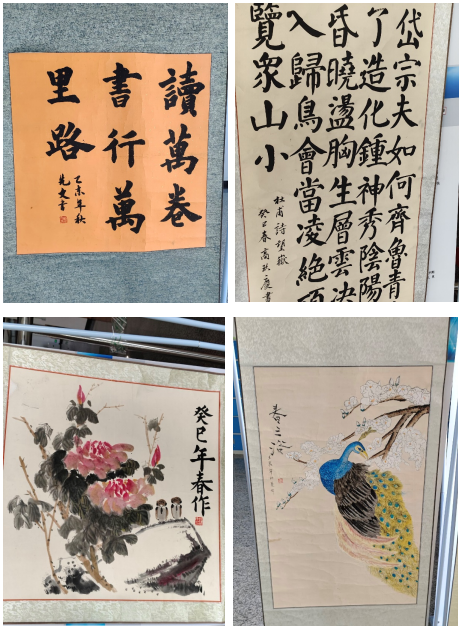 讀萬卷
書行萬
里路
乙未年秋
先文書
岱宗夫如何齊魯青
了造化鍾神秀陰陽
昏曉盪胸生層雲決
入歸鳥會當凌絕頂
覽眾山小
杜甫詩望嶽
癸巳春高玖慶書
癸巳年春作
春之